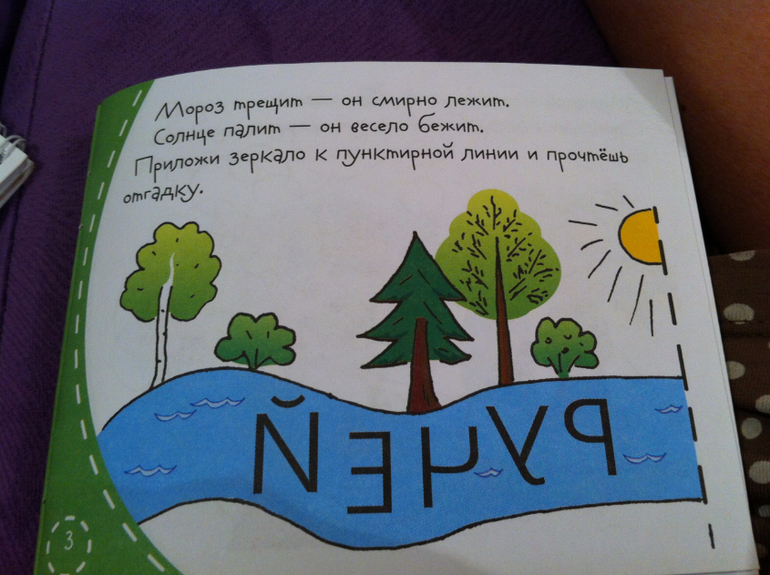 Мороз трещит — он смирно лежит.
Солнце палит — он весело бежит.
Приложи зеркало к пунктирной линии и прочтёшь
отгадку.
РУЧЕЙ
3